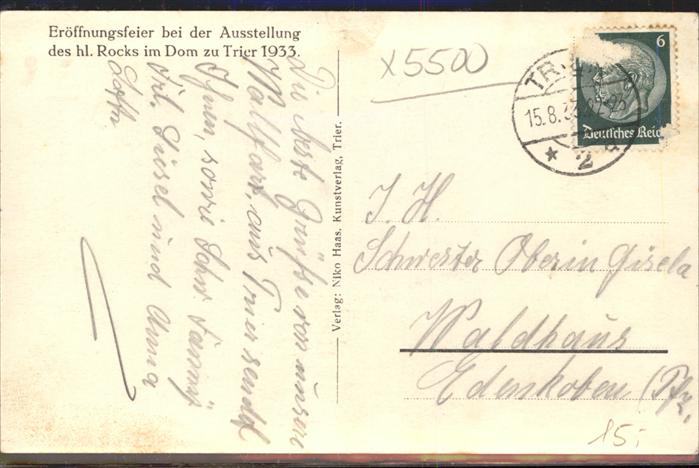 Eröffnungsfeier bei der Ausstellung
des hl. Rocks im Dom zu Trier 1933.
Die beste Grüße von unsere
Wallfart, aus Trier sendet
Ihnen, sowie Schw. Fanny
Frl. Diesel und Anna
Verlag: Niko Haas, Kunstverlag, Trier.
x5500
TRIER
15.8.33
* 2
6
Deutsches Reich
J. H.
Schwester Oberin Gisela
Waldhaus
Edenkoben (Pfz.
15.-